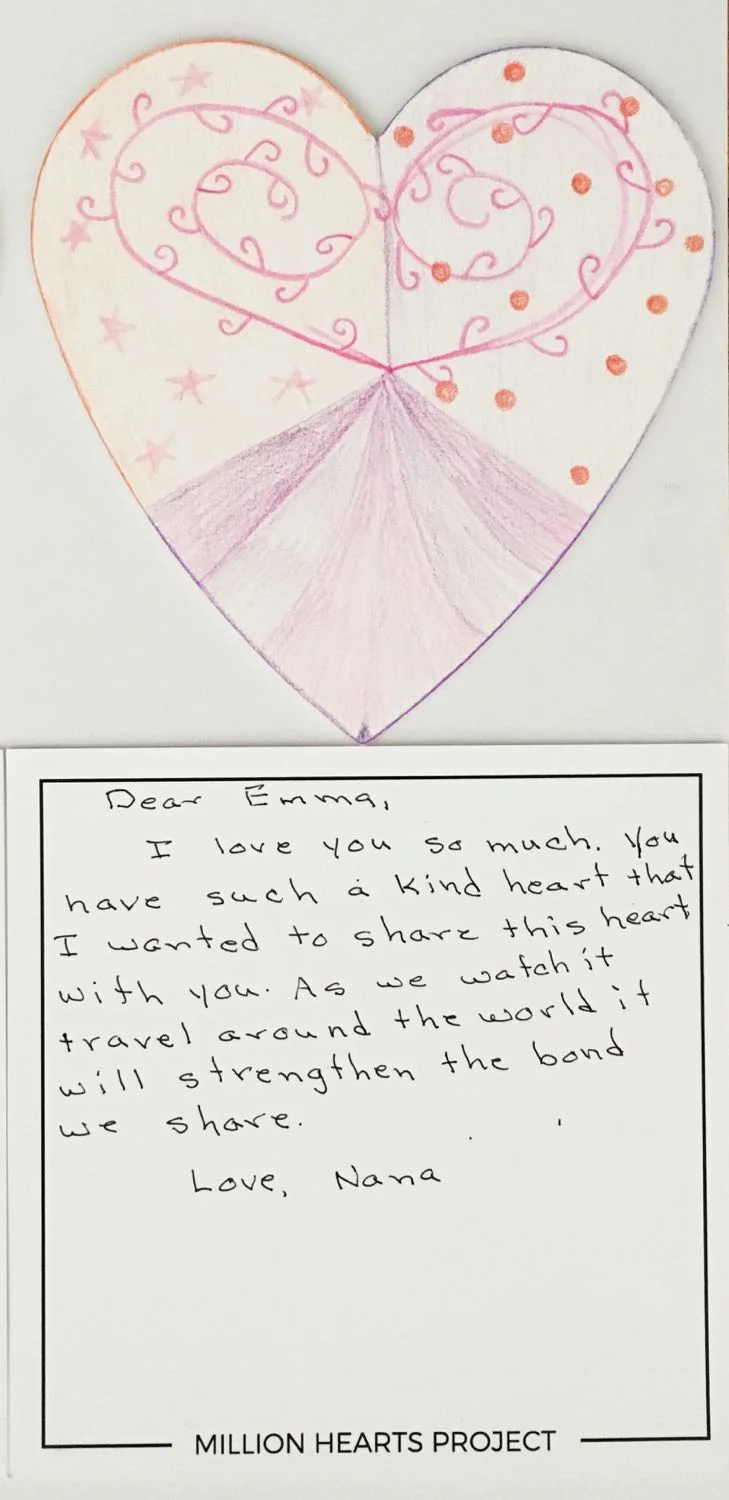 Dear Emma,
I love you so much. You
have such a kind heart that
I wanted to share this heart
with you. As we watch it
travel around the world it
will strengthen the bond
we share.
Love, Nana
MILLION HEARTS PROJECT